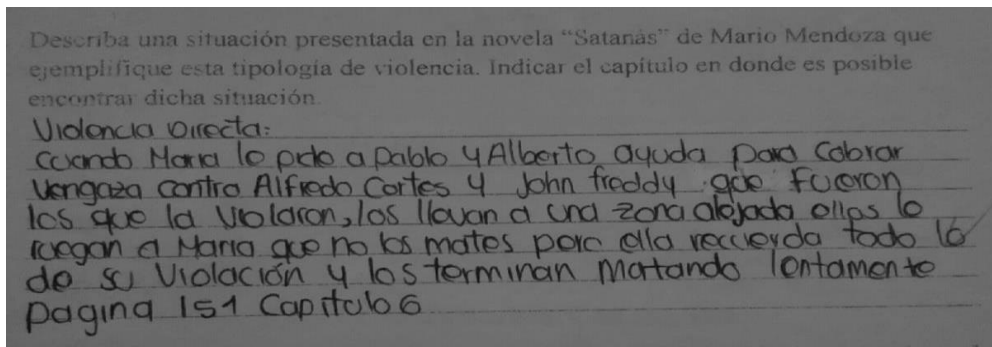 Describa una situación presentada en la novela “Satanás” de Mario Mendoza que
ejemplifique esta tipología de violencia. Indicar el capítulo en donde es posible
encontrar dicha situación.
Violencia Directa:
Cuando Maria le pide a Pablo y Alberto ayuda para Cobrar
Vengaza contra Alfredo Cortes y John freddy que Fueron
los que la Violaron, los llevan a una zona alejada ellos le
ruegan a Maria que no los mates pero ella recuerda todo lo
de su Violación y los terminan Matando lentamente
pagina 151 Capitulo 6